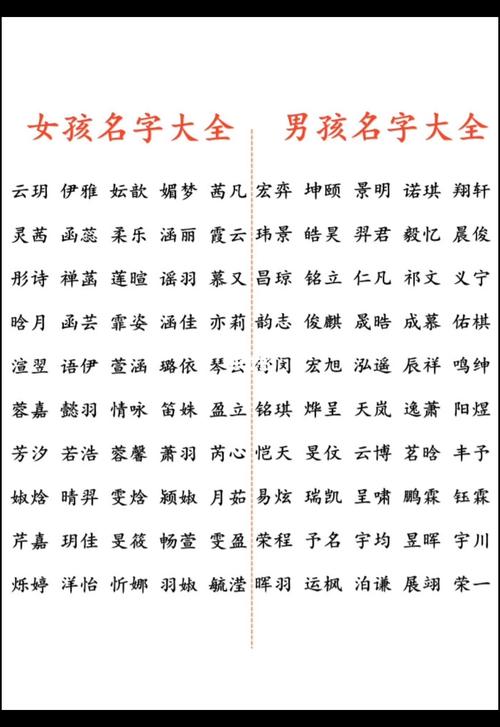 女孩名字大全 男孩名字大全
云玥 伊雅 妘歆 媚梦 茜凡 宏弈 坤颐 景明 诺琪 翔轩
灵茜 函蕊 柔乐 涵丽 霞云 玮景 皓昊 羿君 毅忆 晨俊
彤诗 禅菡 莲暄 谣羽 慕又 昌琼 铭立 仁凡 祁文 义宁
晗月 函芸 霏姿 涵佳 亦莉 韵志 俊麒 晟晧 成慕 佑棋
渲翌 语伊 萱涵 璐依 琴 闵 宏旭 泓遥 辰祥 鸣绅
蓉嘉 懿羽 情咏 笛妹 盈立 铭琪 烨呈 天岚 逸萧 阳煜
芳汐 若浩 蓉馨 萧羽 芮心 恺天 旻仗 云博 茗晗 丰予
婌焓 晴羿 雯焓 颍婌 月茹 易炫 瑞凯 呈啸 鹏霖 钰霖
芹嘉 玥佳 旻筱 畅萱 雯盈 荣程 予名 宇均 昱晖 宇川
烁婷 洋怡 忻娜 羽婌 毓滢 晖羽 运枫 泊谦 展翊 荣一